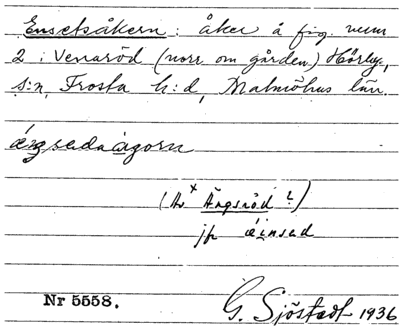 Ensetsåkern: åker å fig. num
2 i Venaröd (norr om gården) Hörby,
s:n, Frosta h:d, Malmöhus län.
ængsedaågorn
(Av × Ängsröd?)
jfr æinsed
Nr 5558.
G. Sjöstedt 1936